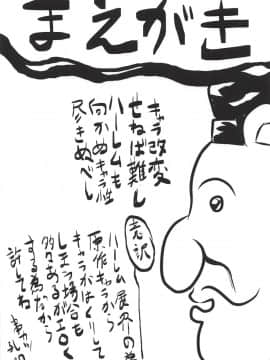 まえがき
キャラ改変
せねば難し
ハーレムも
向かぬキャラ性
尽きぬべし
老沢
ハーレム展開の為
原作キャラから
キャラがはくりして
しまう場合も
多々あるがエロく
する為だから
許してね